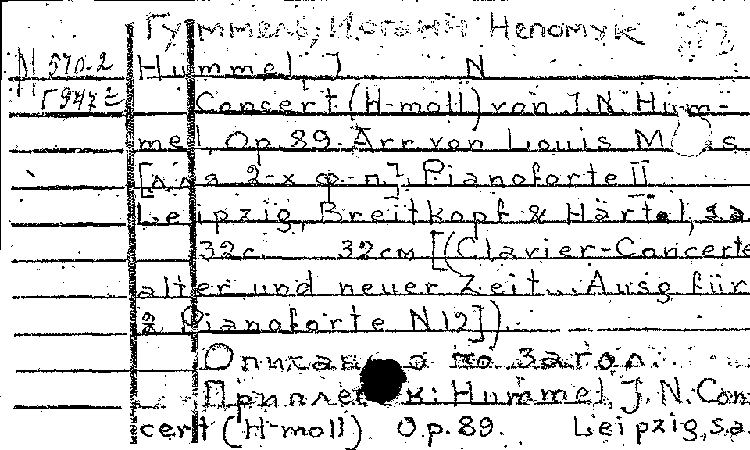 Гуммель, Иоганн Непомук
М 570-2 Hummel, J N
Г 947 2 Concert (H-moll) von J. N. Hum-
mel, Op. 89. Arr von Louis
[для 2-х ф-п.], Pianoforte II
Leipzig, Breitkopf & Härtel, s.a
32с. 32см [(Clavier-Concerte
alter und neuer Zeit... Ausg für
2 Pianoforte N 12]).
по загол.
к: Hummel, J. N. Con
cert (H-moll) Op. 89. Leipzig, s.a.